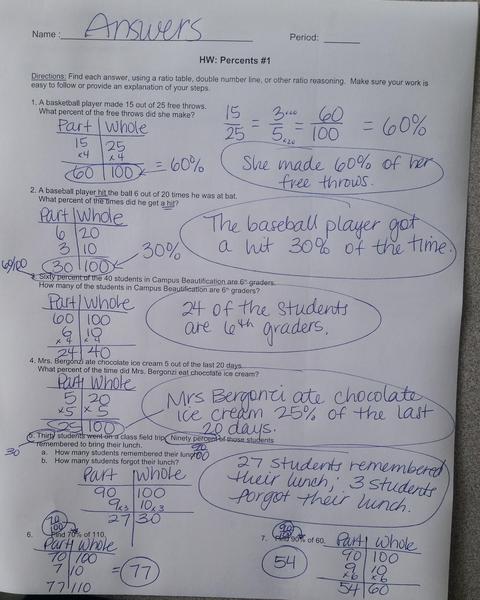 Name : Answers Period: ____
HW: Percents #1
Directions: Find each answer, using a ratio table, double number line, or other ratio reasoning. Make sure your work is
easy to follow or provide an explanation of your steps.
1. A basketball player made 15 out of 25 free throws.
What percent of the free throws did she make?
Part | Whole
15 | 25
x4 | x4
60 | 100 = 60%
15/25 = 3 x20/5 x20 = 60/100 = 60%
She made 60% of her
free throws.
2. A baseball player hit the ball 6 out of 20 times he was at bat.
What percent of the times did he get a hit?
Part | Whole
6 | 20
3 | 10
30 | 100
30%
The baseball player got
a hit 30% of the time.
60/100
3. Sixty percent of the 40 students in Campus Beautification are 6th graders.
How many of the students in Campus Beautification are 6th graders?
Part | Whole
60 | 100
6 | 10
x4 | x4
24 | 40
24 of the students
are 6th graders.
4. Mrs. Bergonzi ate chocolate ice cream 5 out of the last 20 days.
What percent of the time did Mrs. Bergonzi eat chocolate ice cream?
Part | Whole
5 | 20
x5 | x5
25 | 100
Mrs Bergonzi ate chocolate
ice cream 25% of the last
20 days.
5. Thirty students went on a class field trip. Ninety percent of those students
remembered to bring their lunch.
30
90/100
a. How many students remembered their lunch?
b. How many students forgot their lunch?
Part | Whole
90 | 100
9 x3 | 10 x3
27 | 30
27 students remembered
their lunch; 3 students
forgot their lunch.
6. Find 70% of 110.
70/100
Part | Whole
70 | 100
7 | 10
77 | 110
= 77
7. Find 90% of 60.
90/100
54
Part | Whole
90 | 100
9 | 10
x6 | x6
54 | 60